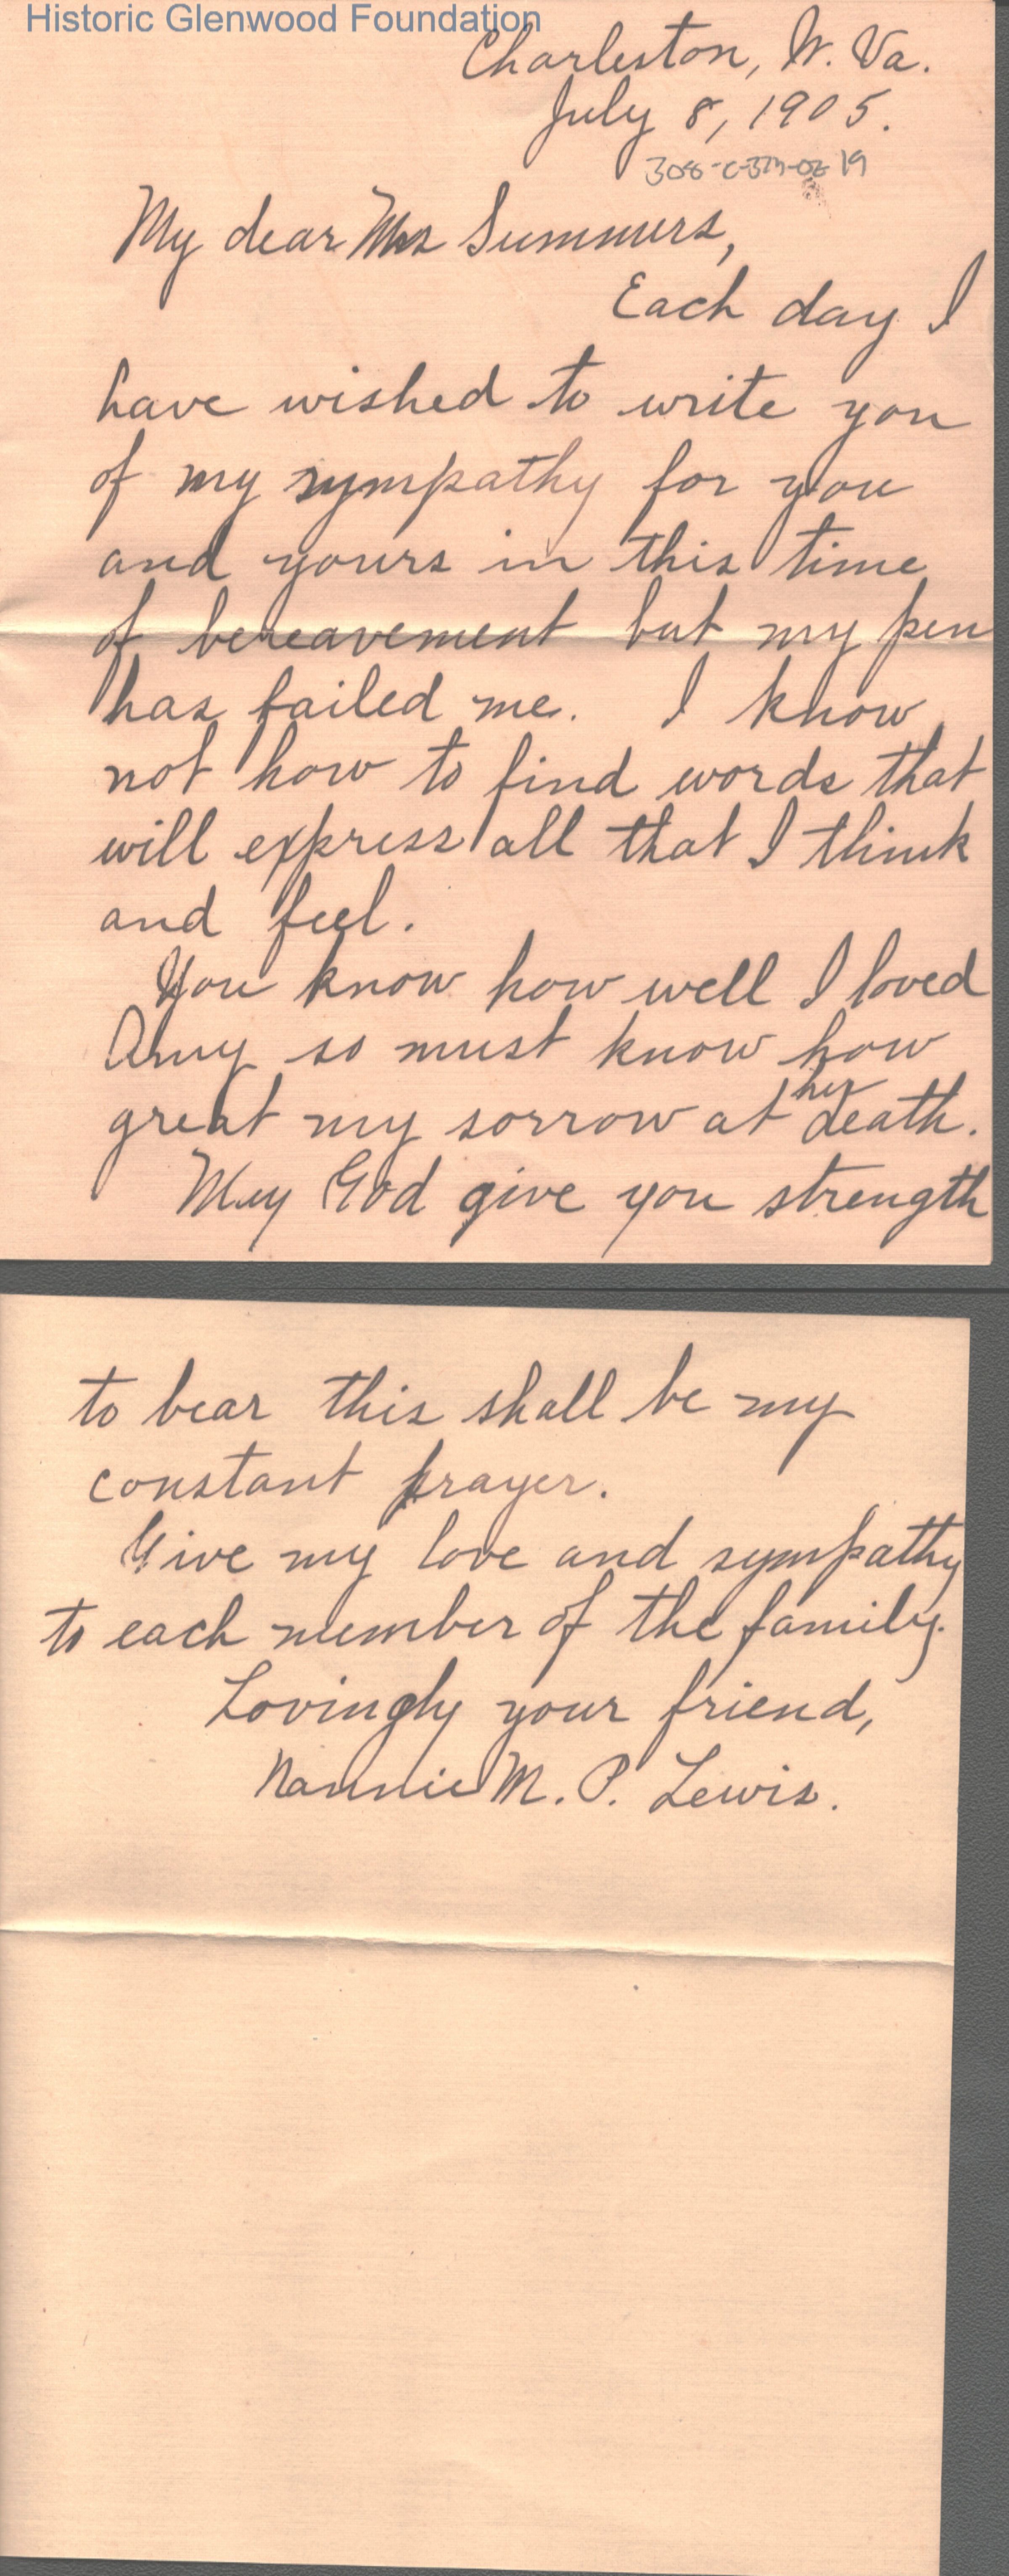 Historic Glenwood Foundation
Charleston, W. Va.
July 8, 1905.
My dear Mrs Summers,
Each day I
have wished to write you
of my sympathy for you
and yours in this time
of bereavement but my pen
has failed me. I know
not how to find words that
will express all that I think
and feel.
You know how well I loved
Amy so must know how
her
great my sorrow at death.
May God give you strength
to bear this shall be my
constant prayer.
Give my love and sympathy
to each member of the family.
Lovingly your friend,
Nannie M. P. Lewis.